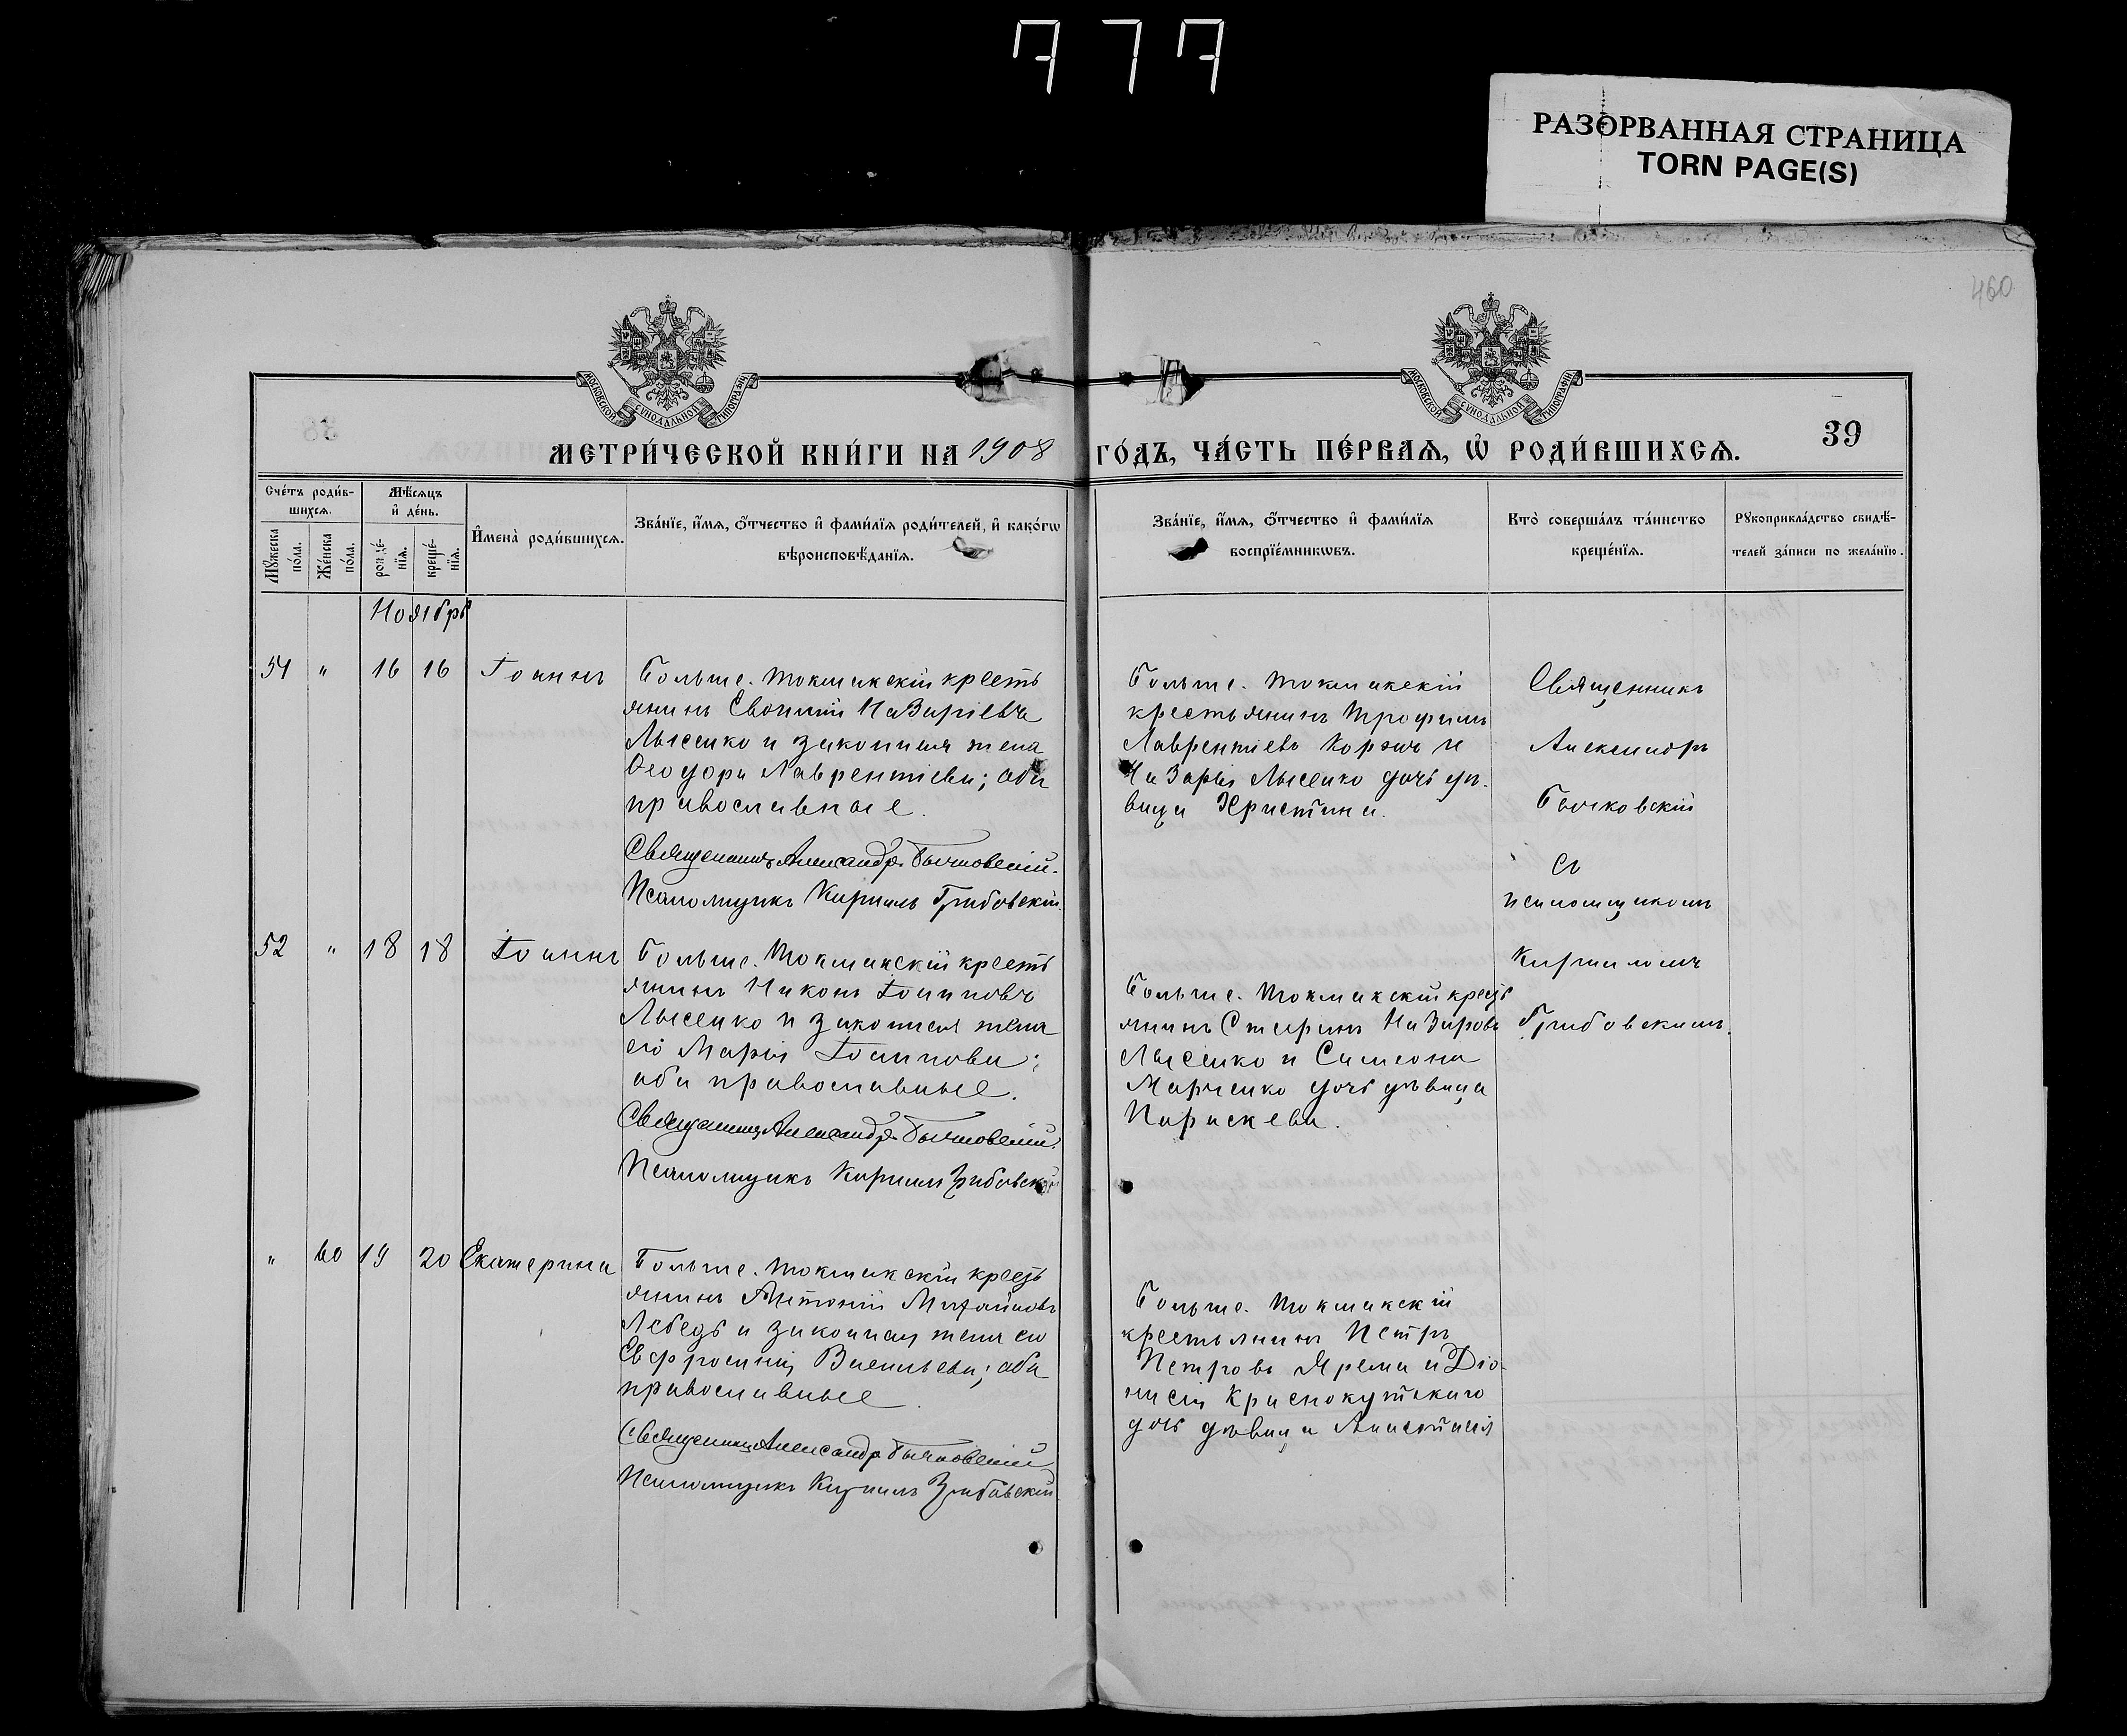 777
РАЗОРВАННАЯ СТРАНИЦА
TORN PAGE(S)
460
МОСКОВСКОЙ СѴНОДАЛЬНОЙ ТИПОГРАФІИ
МОСКОВСКОЙ СѴНОДАЛЬНОЙ ТИПОГРАФІИ
39
МЕТРИ́ЧЕСКОЙ КНИ́ГИ НА 1908 ГО́ДЪ, ЧА́СТЬ ПЕ́РВАѦ, Ѡ҆ РОДИ́ВШИХСѦ.
Счéтъ роди́в-
шихсѧ.
Мꙋ́жеска
по́ла.
Же́нска
по́ла.
Мѣ́сѧцъ
и҆ де́нь.
рожде́-
нїѧ.
креще́-
нїѧ.
И҆мена̀ роди́вшихсѧ.
Зва́нїе, и҆́мѧ, ѻ҆́тчество и҆ фами́лїѧ роди́телей, и҆ како́гѡ
вѣроисповѣ́данїѧ.
Зва́нїе, и҆́мѧ, ѻ҆́тчество и҆ фами́лїѧ
воспрїе́мникѡвъ.
Кто̀ соверша́лъ та́инство
креще́нїѧ.
Рꙋкоприкла́дство свидѣ́-
телей за́писи по жела́нїю.
Ноябрь
51 " 16 16 Іоаннъ
Больше-Токмакскій кресть
янинъ Евѳимій Назаріевъ
Лысенко и законная жена
Ѳеодора Лаврентіева; оба
православные.
Священникъ Александръ Бычковскій.
Псаломщикъ Кириллъ Грибовскій.
Больше-Токмакскій
крестьянинъ Трофимъ
Лаврентіевъ Коржъ и
Назарія Лысенко дочь дѣ-
вица Христина.
Священникъ
Александръ
Бычковскій
съ
псаломщикомъ
Кирилломъ
Грибовскимъ.
52 " 18 18 Іоаннъ
Больше-Токмакскій кресть
янинъ Никонъ Іоанновъ
Лысенко и законная жена
его Марія Іоаннова;
оба православные.
Священникъ Александръ Бычковскій.
Псаломщикъ Кириллъ Грибовскій
Больше-Токмакскій кресть
янинъ Стефанъ Назаровъ
Лысенко и Симеона
Марченко дочь дѣвица
Параскева.
" 60 19 20 Екатерина
Больше-Токмакскій кресть
янинъ Антоній Михайловъ
Лебедь и законная жена его
Евфросинія Васильева; оба
православные.
Священникъ Александръ Бычковскій
Псаломщикъ Кириллъ Грибовскій.
Больше-Токмакскій
крестьянинъ Петръ
Петровъ Ярема и Діо-
нисія Краснокутскаго
дочь дѣвица Анастасія